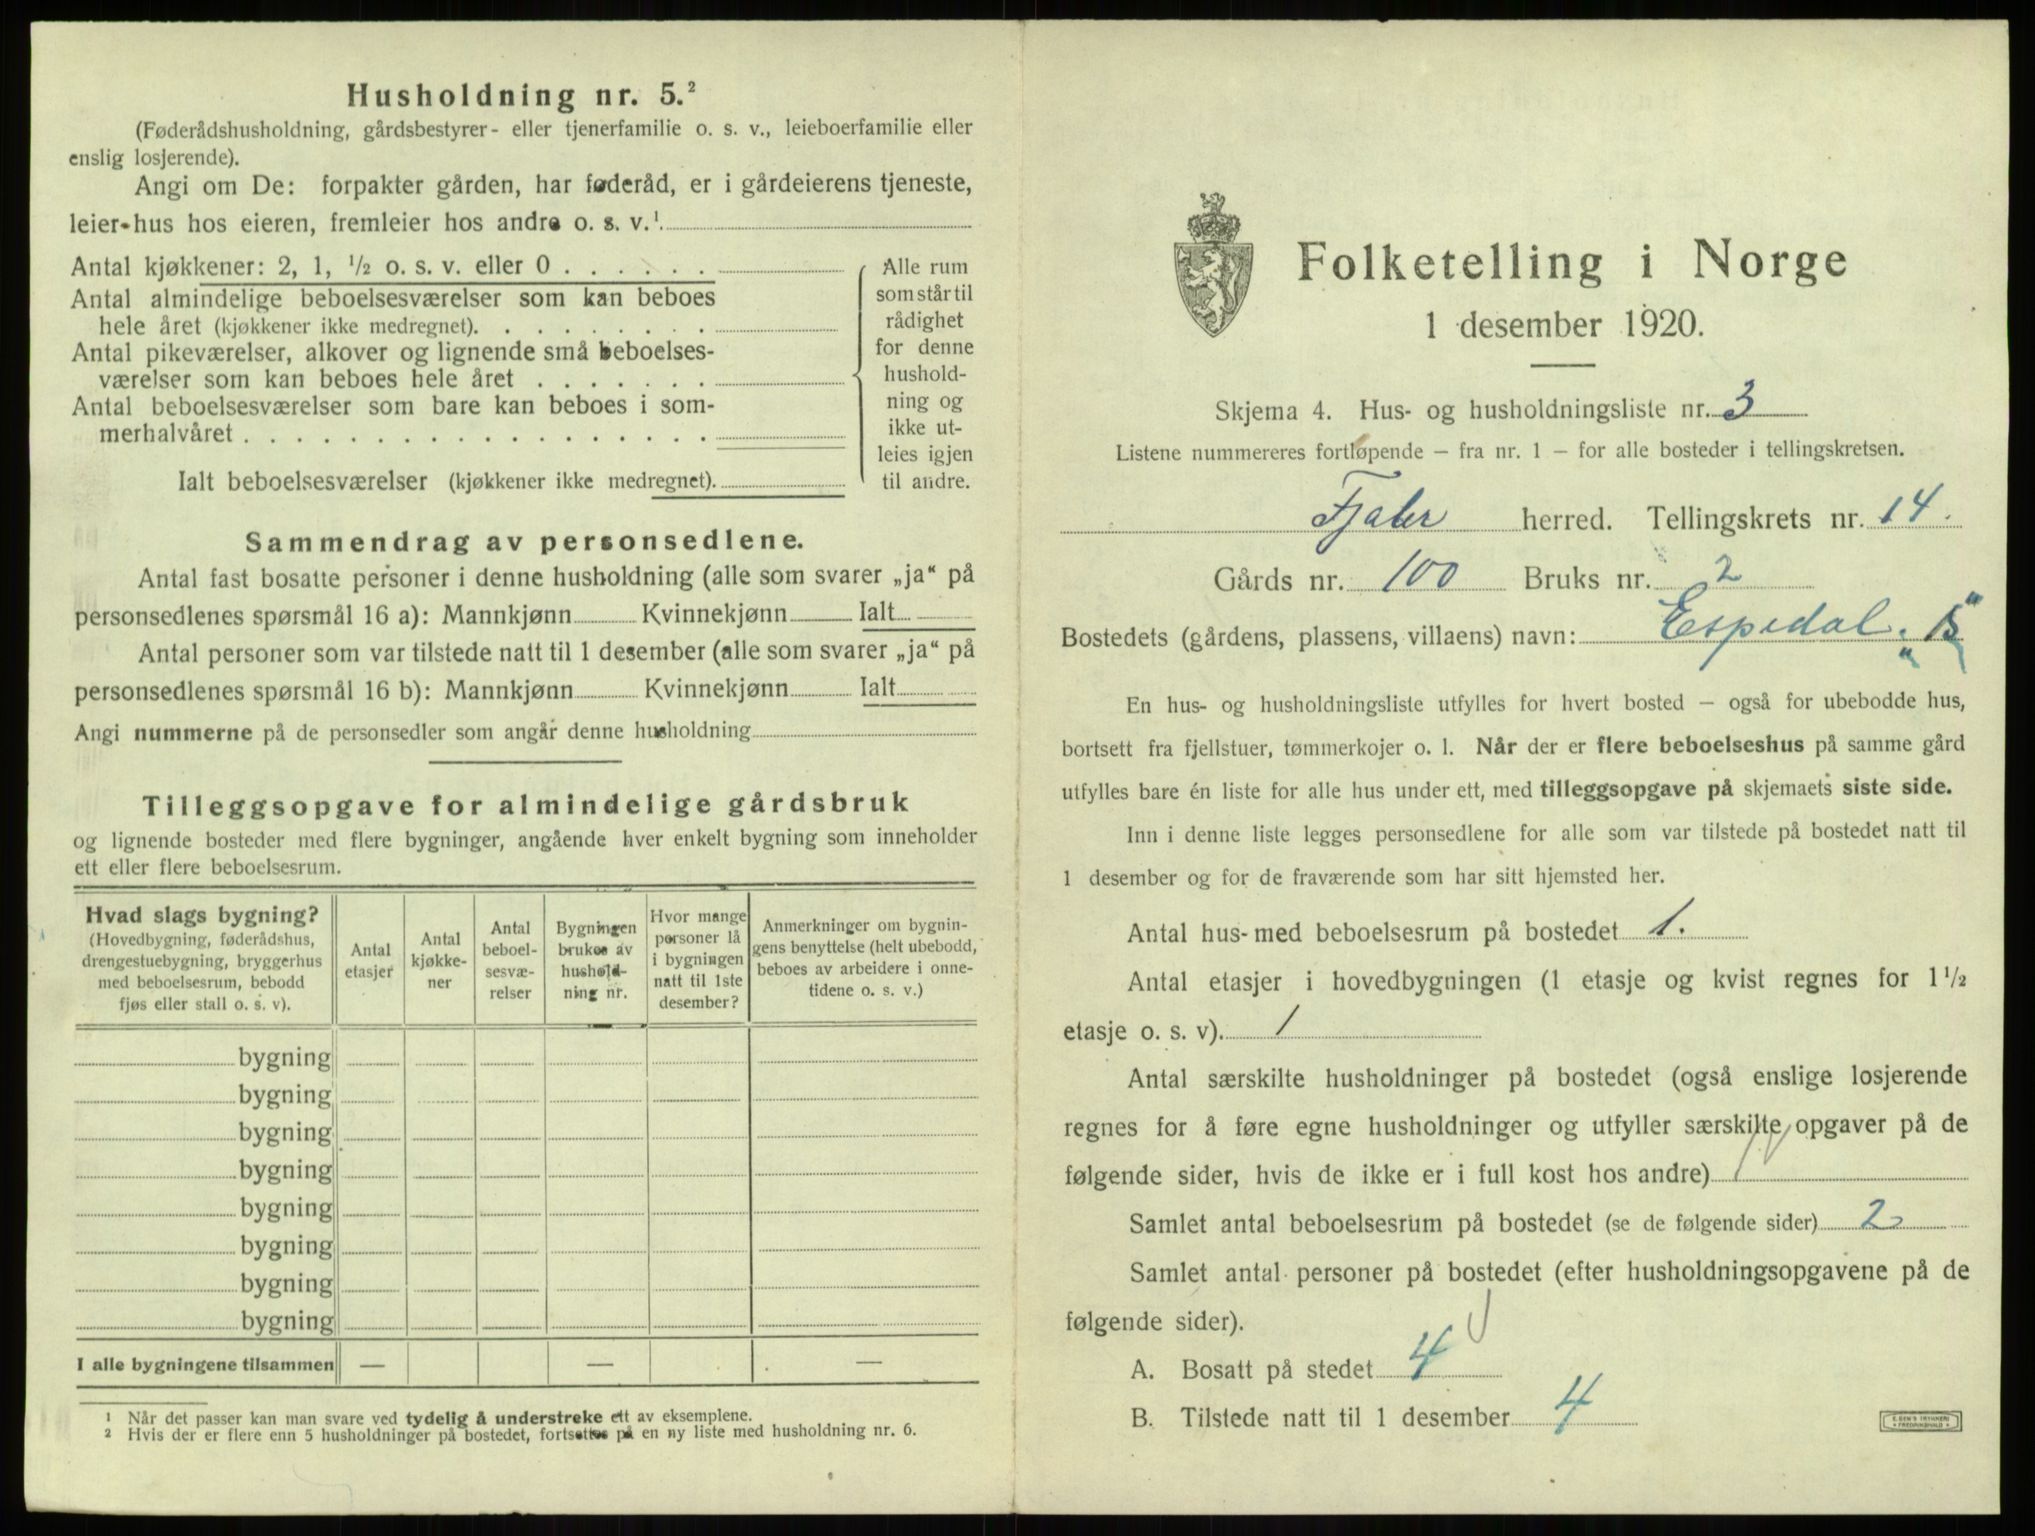 Husholdning nr. 5.²
(Føderådshusholdning, gårdsbestyrer- eller tjenerfamilie o. s. v., leieboerfamilie eller
enslig losjerende).
Angi om De: forpakter gården, har føderåd, er i gårdeierens tjeneste,
leier hus hos eieren, fremleier hos andre o. s. v.¹
Antal kjøkkener: 2, 1, ½ o. s. v. eller 0 . . . . . .
Antal almindelige beboelsesværelser som kan beboes
hele året (kjøkkener ikke medregnet). . . . . . . . .
Antal pikeværelser, alkover og lignende små beboelses-
værelser som kan beboes hele året . . . . . . .
Antal beboelsesværelser som bare kan beboes i som-
merhalvåret . . . . . . . . . . . . . . . . . .
Ialt beboelsesværelser (kjøkkener ikke medregnet).
Alle rum
som står til
rådighet
for denne
hushold-
ning og
ikke ut-
leies igjen
til andre.
Sammendrag av personsedlene.
Antal fast bosatte personer i denne husholdning (alle som svarer „ja“ på
personsedlenes spørsmål 16 a): Mannkjønn Kvinnekjønn Ialt
Antal personer som var tilstede natt til 1 desember (alle som svarer „ja“ på
personsedlenes spørsmål 16 b): Mannkjønn Kvinnekjønn Ialt
Angi nummerne på de personsedler som angår denne husholdning
Tilleggsopgave for almindelige gårdsbruk
og lignende bosteder med flere bygninger, angående hver enkelt bygning som inneholder
ett eller flere beboelsesrum.
Hvad slags bygning?
(Hovedbygning, føderådshus,
drengestuebygning, bryggerhus
med beboelsesrum, bebodd
fjøs eller stall o. s. v).
Antal
etasjer
Antal
kjøkke-
ner
Antal
beboel-
sesvæ-
relser
Bygningen
brukes av
hushold-
ning nr.
Hvor mange
personer lå
i bygningen
natt til 1ste
desember?
Anmerkninger om bygnin-
gens benyttelse (helt ubebodd,
beboes av arbeidere i onne-
tidene o. s. v.)
bygning
bygning
bygning
bygning
bygning
bygning
bygning
bygning
I alle bygningene tilsammen — — —
1 Når det passer kan man svare ved tydelig å understreke ett av eksemplene.
2 Hvis der er flere enn 5 husholdninger på bostedet, fortsettes på en ny liste med husholdning nr. 6.
Folketelling i Norge
1 desember 1920.
Skjema 4. Hus- og husholdningsliste nr. 3
Listene nummereres fortløpende — fra nr. 1 — for alle bosteder i tellingskretsen.
Fjaler herred. Tellingskrets nr. 14.
Gårds nr. 100 Bruks nr. 2
Bostedets (gårdens, plassens, villaens) navn: Espedal „B“
En hus- og husholdningsliste utfylles for hvert bosted — også for ubebodde hus,
bortsett fra fjellstuer, tømmerkojer o. l. Når der er flere beboelseshus på samme gård
utfylles bare én liste for alle hus under ett, med tilleggsopgave på skjemaets siste side.
Inn i denne liste legges personsedlene for alle som var tilstede på bostedet natt til
1 desember og for de fraværende som har sitt hjemsted her.
Antal hus med beboelsesrum på bostedet 1.
Antal etasjer i hovedbygningen (1 etasje og kvist regnes for 1½
etasje o. s. v). 1
Antal særskilte husholdninger på bostedet (også enslige losjerende
regnes for å føre egne husholdninger og utfyller særskilte opgaver på de
følgende sider, hvis de ikke er i full kost hos andre) 1
Samlet antal beboelsesrum på bostedet (se de følgende sider) 2
Samlet antal personer på bostedet (efter husholdningsopgavene på de
følgende sider).
A. Bosatt på stedet 4
B. Tilstede natt til 1 desember 4
E. SEM'S TRYKKERI
FREDRIKSHALD